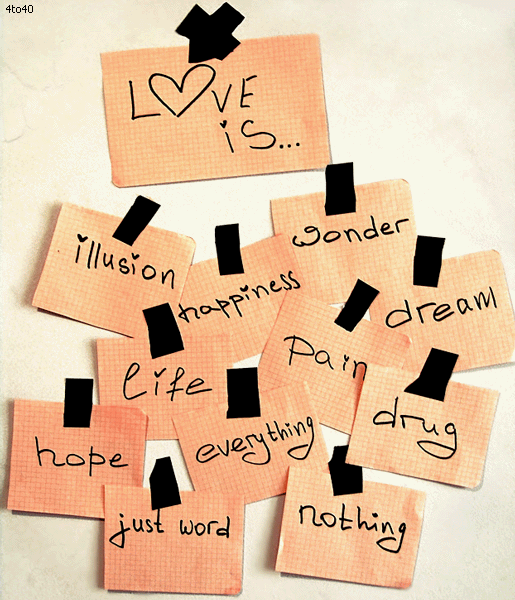 4to40
L♡VE
is...
wonder
illusion
happiness
dream
Pain
life
drug
everything
hope
nothing
just word